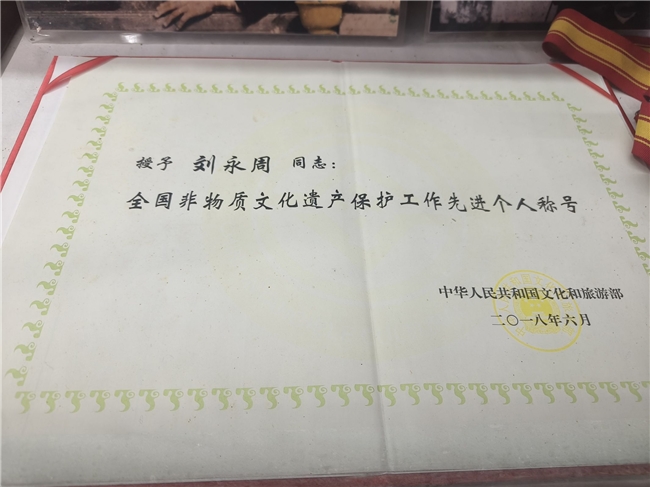 授予 刘永周 同志：
全国非物质文化遗产保护工作先进个人称号
中华人民共和国文化和旅游部
二〇一八年六月